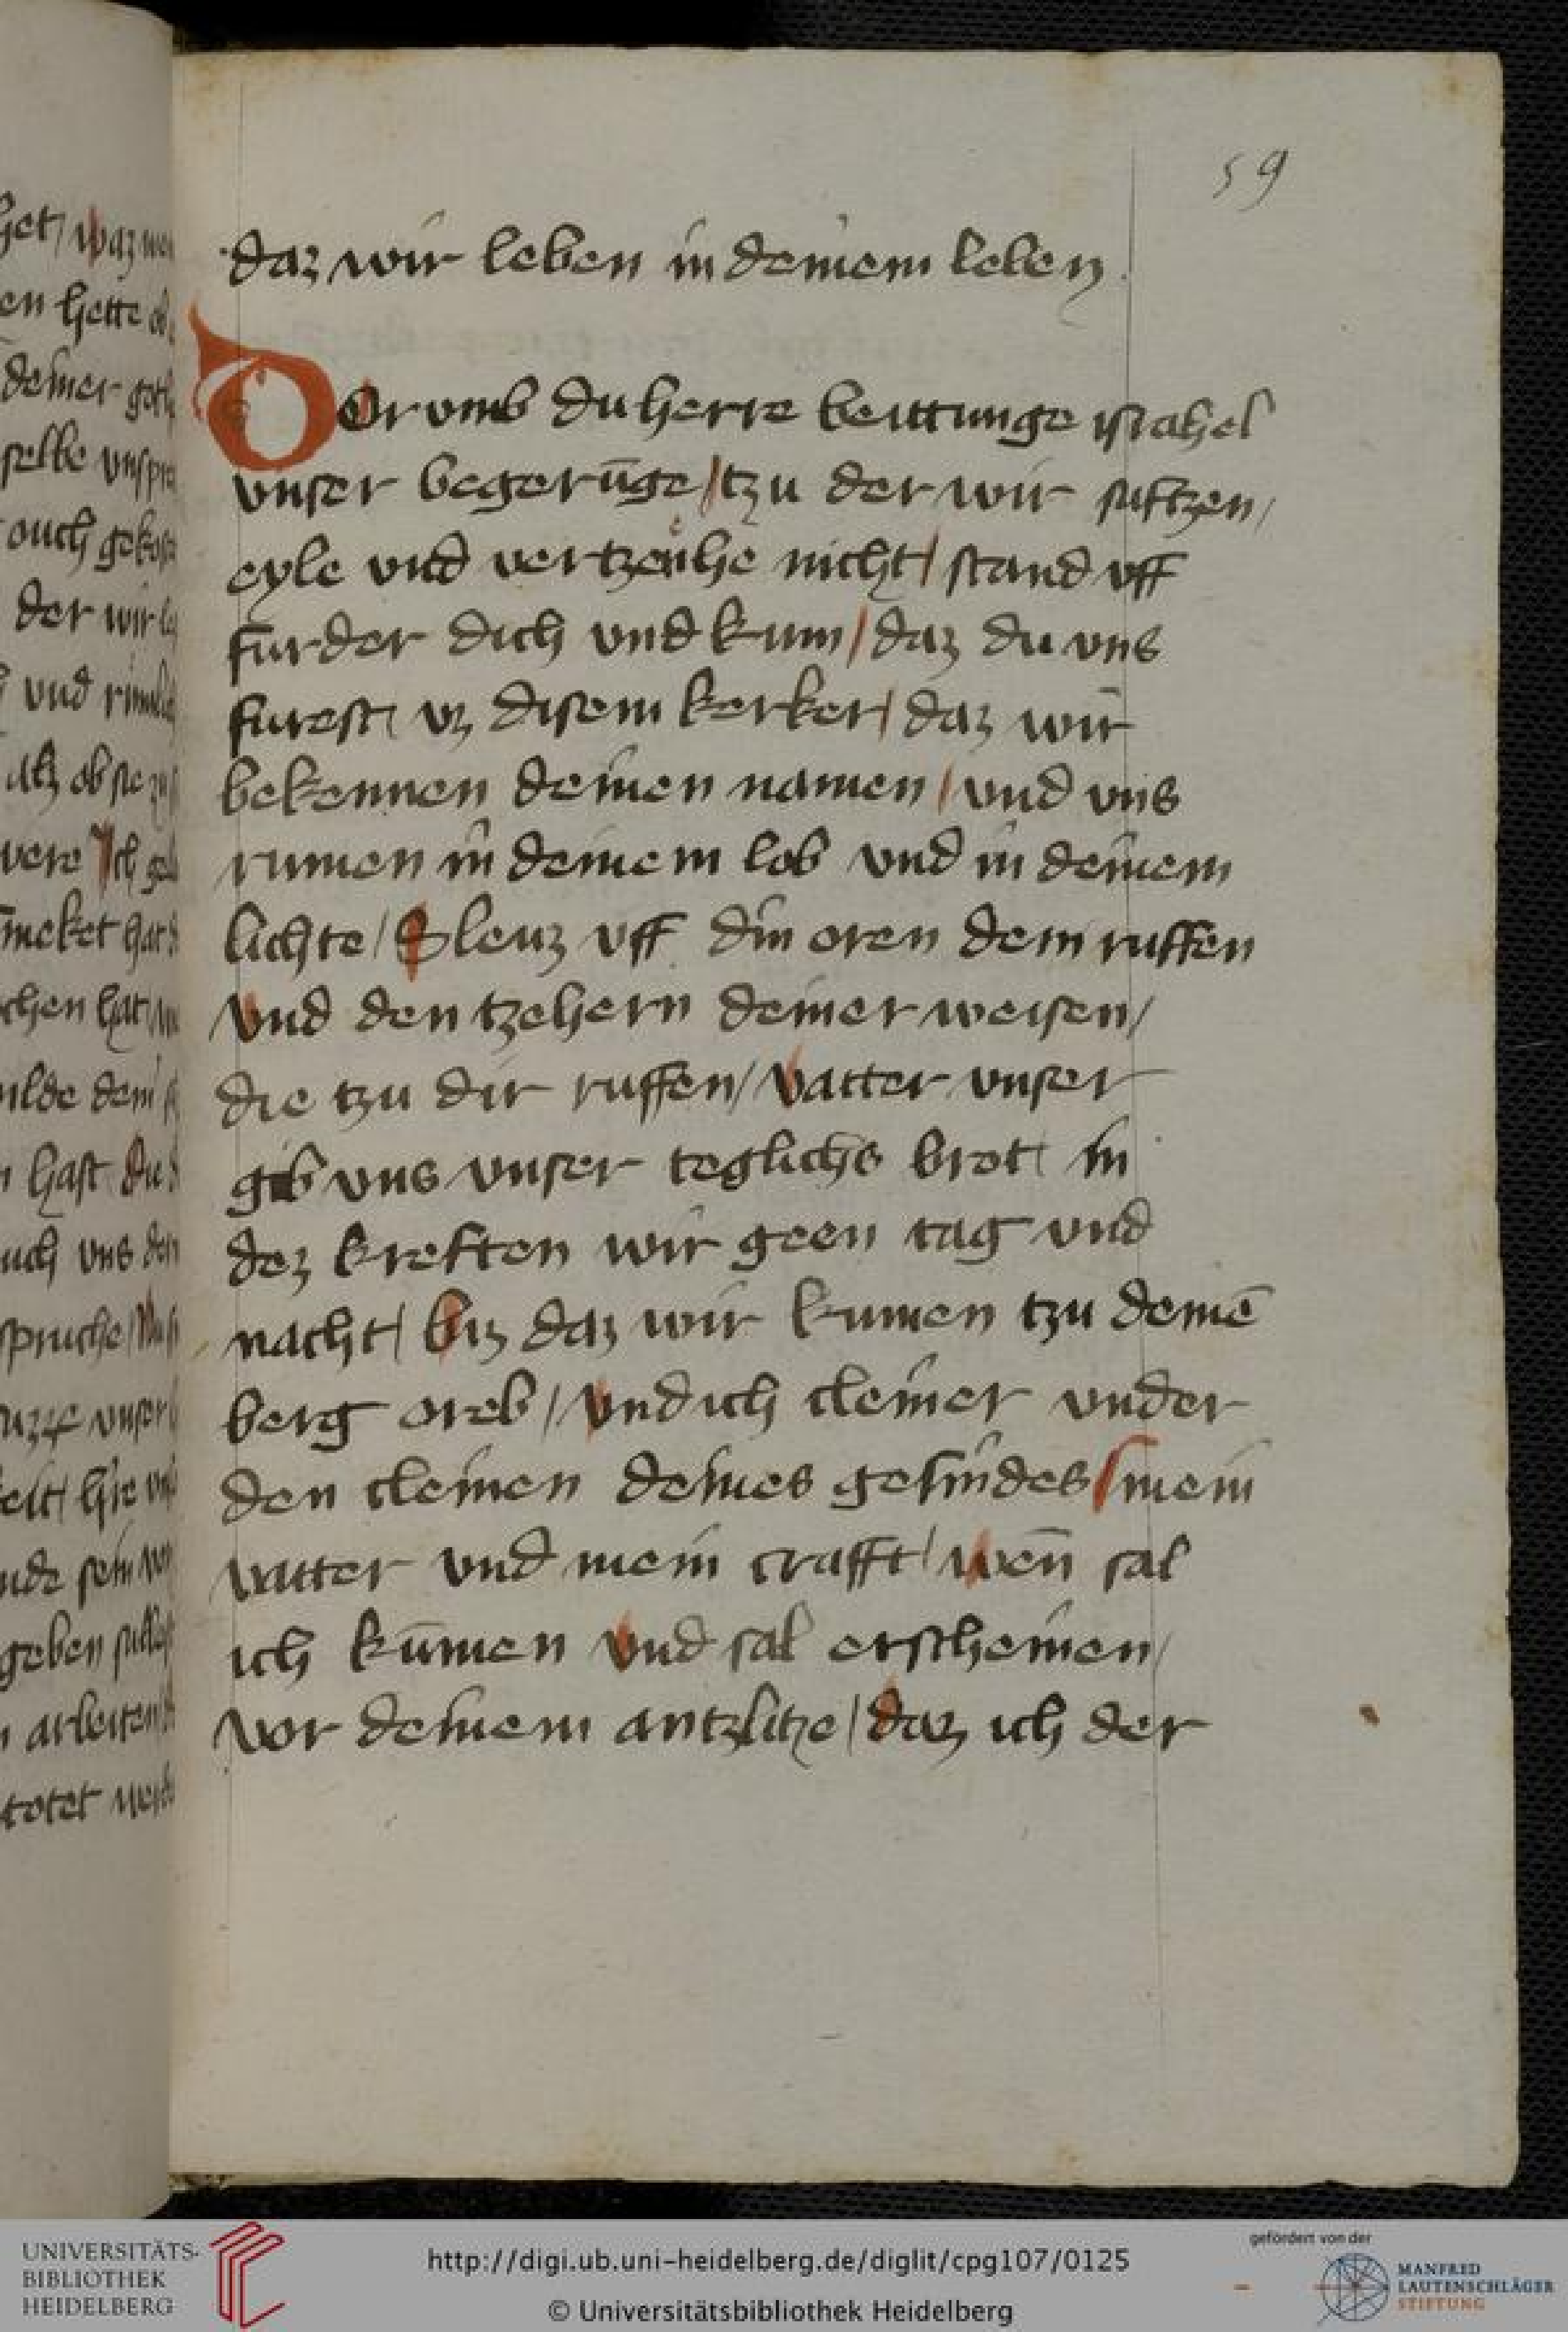 59
daz wir leben in deinem leben
DOr vmb du herre beittunge israhel
vnser begerūge / tzu der wir suftzen /
eyle vnd vertzeuhe nicht / stand vff
furder dich vnd kum / daz du vns
furest / vz disem kerker / daz wir
bekennen deinen namen / vnd vns
rumen in deinem lob vnd in deinem
lichte / Sleuz vff din oren dem ruffen
vnd den tzehern deiner weisen /
die tzu dir ruffen / vatter vnser
gib vns vnser teglichs brot / in
dez kreften wir geen tag vnd
nacht / biz daz wir kumen tzu deinē
berg oreb / vnd ich cleiner vnder
den cleinen deines gesindes / mein
vatter vnd mein crafft / wen̄ sal
ich kūmen vnd sal erscheinen /
vor deinem antzlitze / daz ich der
UNIVERSITÄTS-
BIBLIOTHEK
HEIDELBERG
http://digi.ub.uni-heidelberg.de/diglit/cpg107/0125
© Universitätsbibliothek Heidelberg
gefördert von der
MANFRED
LAUTENSCHLÄGER
STIFTUNG